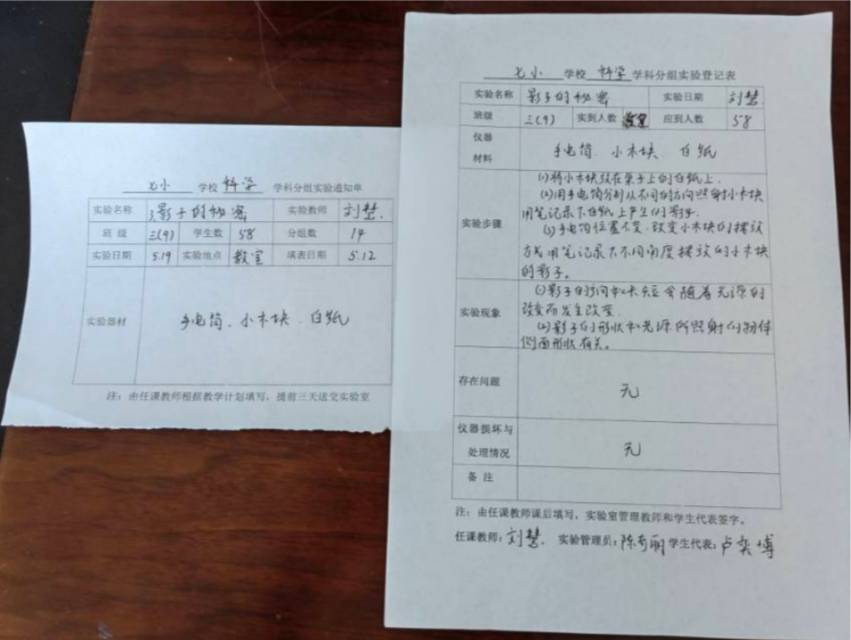 七小 学校 科学 学科分组实验通知单
实验名称 影子的秘密 实验教师 刘慧
班 级 三(9) 学生数 58 分组数 14
实验日期 5.19 实验地点 教室 填表日期 5.12
实验器材 手电筒、小木块、白纸
注:由任课教师根据教学计划填写,提前三天送交实验室
七小 学校 科学 学科分组实验登记表
实验名称 影子的秘密 实验日期 刘慧
班级 三(9) 实到人数 应到人数 58
仪器
材料 手电筒、小木块、白纸
实验步骤
(1)将小木块放在桌子上的白纸上.
(2)用手电筒分别从不同的方向照射小木块
用笔记录下白纸上产生的影子.
(3)手电筒位置不变,改变小木块的摆放
方式用笔记录下不同角度摆放的小木块
的影子。
实验现象
(1)影子的方向和长短会随着光源的
改变而发生改变.
(2)影子的形状和光源所照射的物体
侧面形状有关。
存在问题 无
仪器损坏与
处理情况 无
备 注
注:由任课教师课后填写,实验室管理教师和学生代表签字。
任课教师:刘慧. 实验管理员:陈 丽 学生代表:卢奕博